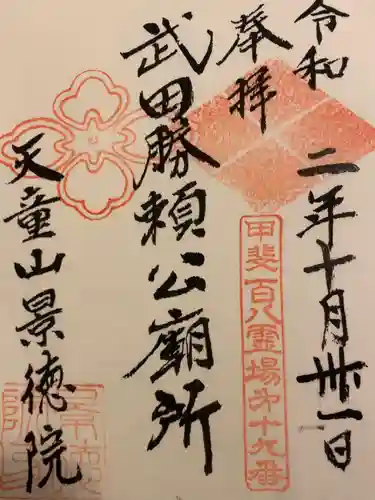 令和二年十月卅一日
奉拝
甲斐百八霊場第十九番
武田勝頼公廟所
天童山景徳院